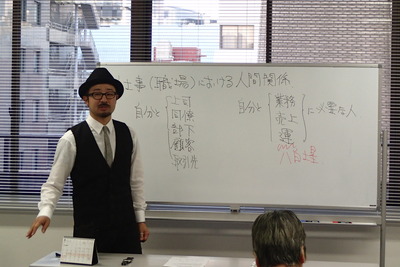 仕事(職場)における人間関係
自分と
上司
同僚
部下
顧客
取引先
自分と
業務
売上
運
に必要な人